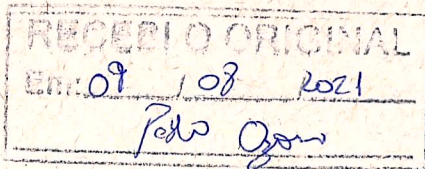 RECEBI O ORIGINAL
Em: 09 / 08 2021